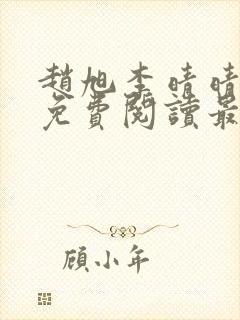 趙旭李晴晴
免費閱讀最
顧小年